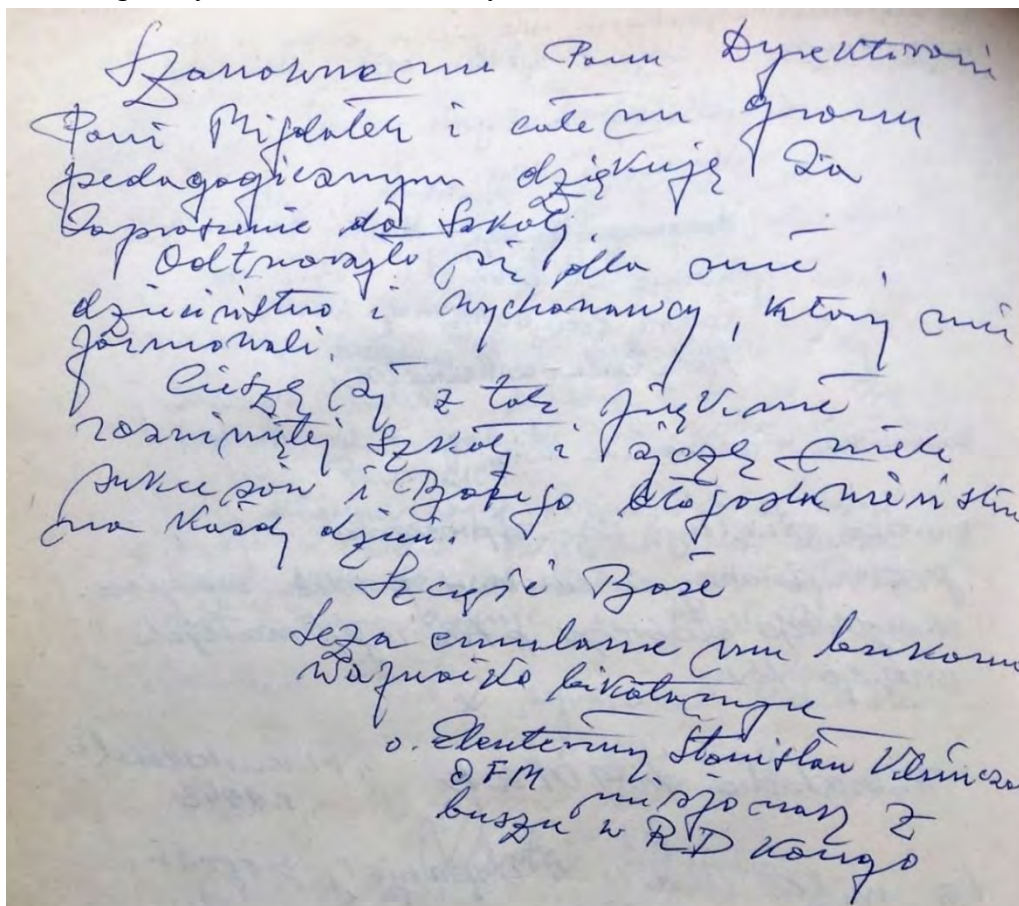 Szanownemu Panu Dyrektorowi
Pani Migdałek i całemu gronu
pedagogicznym dziękuję za
Zaproszenie do Szkoły.
Odtworzyło się dla mnie
dzieciństwo i wychowawcy, którzy mnie
formowali.
Cieszę się z tak pięknie
rozwiniętej Szkoły i życzę wiele
sukcesów i Bożego błogosławieństwa
na każdy dzień.
Szczęść Boże
o. Eleuteriusz Stanisław
OFM misjonarz z
buszu w RD Kongo